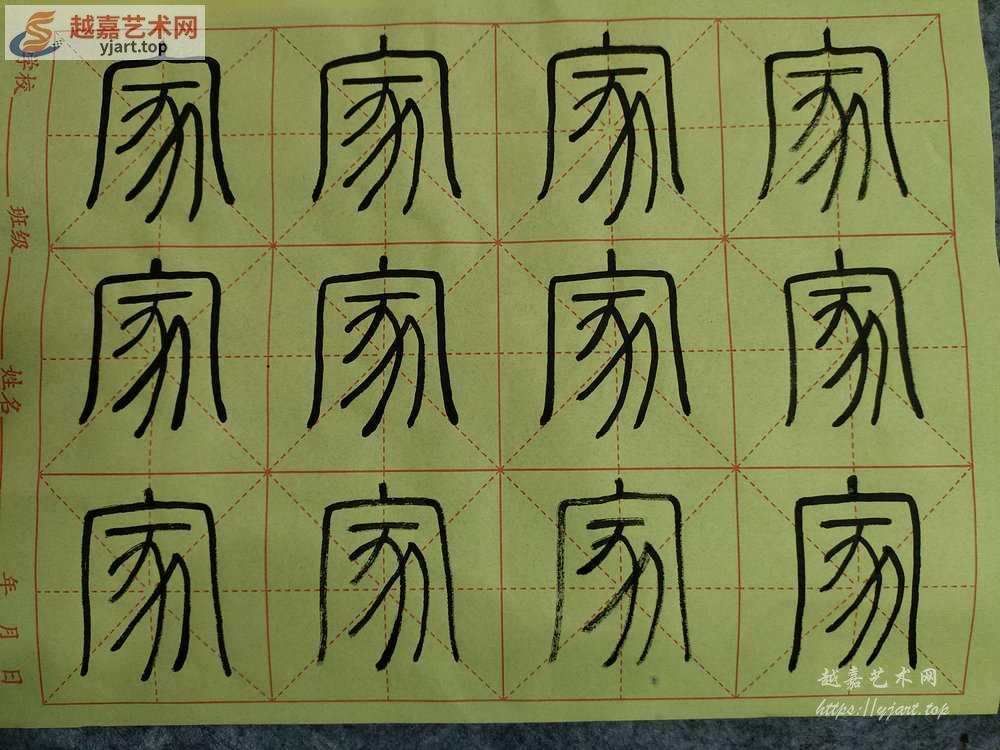 越嘉艺术网
yjart.top
学校
班级
姓名
年 月 日
家 家 家 家
家 家 家 家
家 家 家 家
越嘉艺术网
https://yjart.top